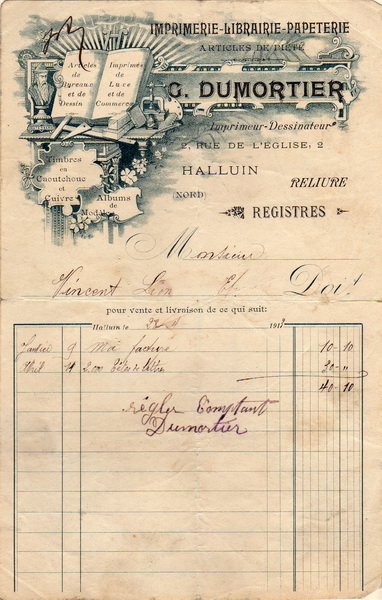 IMPRIMERIE-LIBRAIRIE-PAPETERIE
ARTICLES DE PIÉTÉ
Articles de Bureaux et de Dessin
Imprimés de Luxe et de Commerce
G. DUMORTIER
Imprimeur-Dessinateur
2, RUE DE L'ÉGLISE, 2
HALLUIN
(NORD)
RELIURE
REGISTRES
Timbres en Caoutchouc et Cuivre
Albums de Modèles
Monsieur
Vincent Doit
pour vente et livraison de ce qui suit:
Halluin le 191
Janvier 9 facture 10-10
Avril 11 2.000 Têtes de lettres 30-"
40-10
régler Comptant
Dumortier